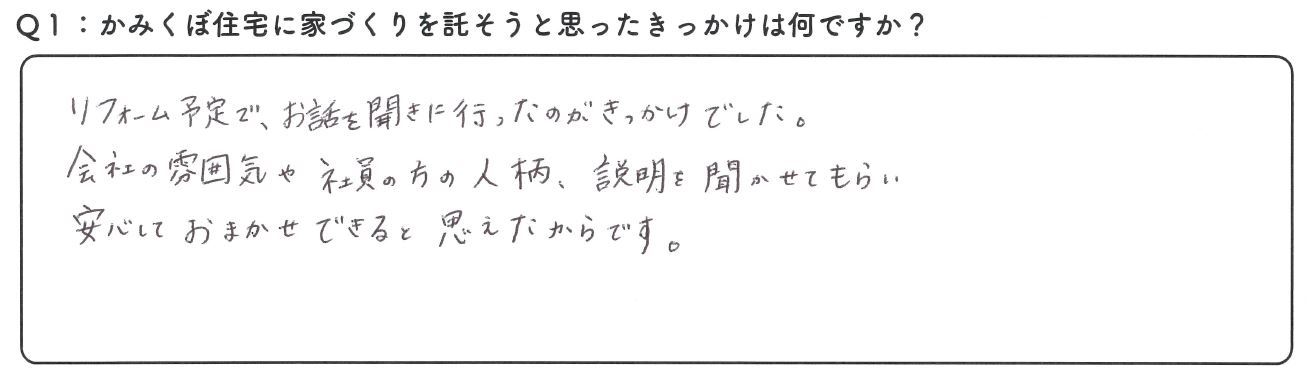 Q1：かみくぼ住宅に家づくりを託そうと思ったきっかけは何ですか？
リフォーム予定で、お話を聞きに行ったのがきっかけでした。
会社の雰囲気や社員の方の人柄、説明を聞かせてもらい
安心しておまかせできると思えたからです。